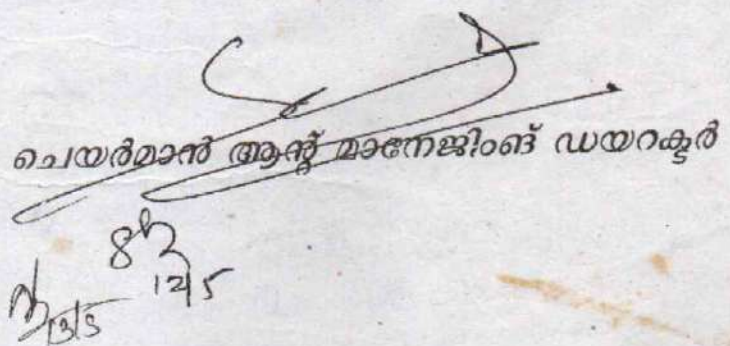 ചെയർമാൻ ആന്റ് മാനേജിംങ് ഡയറക്ടർ
12/5
13/5